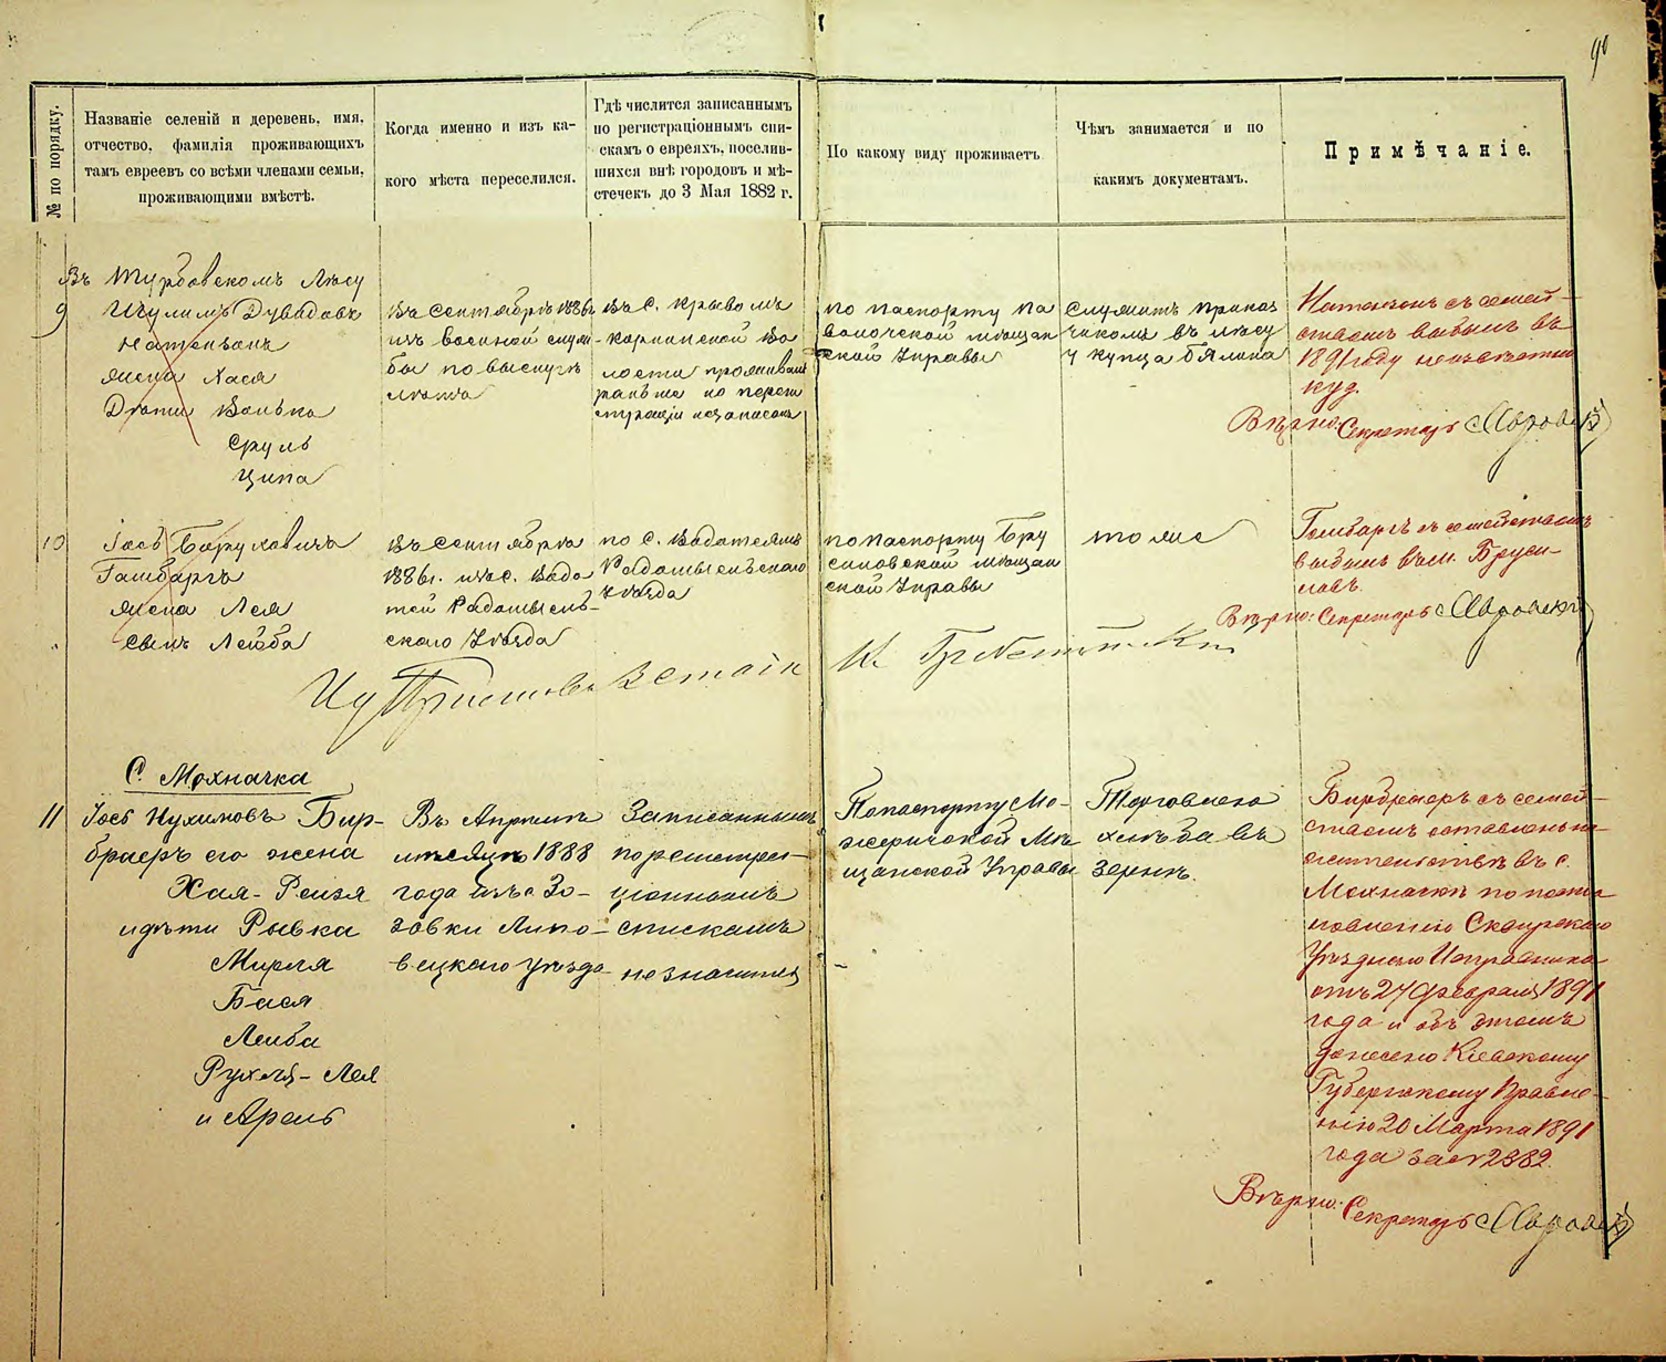 90
№ по порядку.
Названіе селеній и деревень, имя,
отчество, фамилія проживающихъ
тамъ евреевъ со всѣми членами семьи,
проживающими вмѣстѣ.
Когда именно и изъ ка-
кого мѣста переселился.
Гдѣ числится записаннымъ
по регистраціоннымъ спи-
скамъ о евреяхъ, поселив-
шихся внѣ городовъ и мѣ-
стечекъ до 3 Мая 1882 г.
По какому виду проживаетъ
Чѣмъ занимается и по
какимъ документамъ.
Примѣчаніе.
Въ Турбовскомъ Лѣсу
9
Шулимъ Дувидовъ
Натензонъ
жена Хася
Дѣти Волько
Сруль
Ципа
Въ Сентябрѣ 1886г
изъ военной служ-
бы по выслугѣ
лѣта
Въ с. Крывомъ
Карнинской Во
лости проживалъ
раньше но перем
записанъ
по паспорту Па
волочской мѣщан
ской Управы
Служитъ приказ
чикомъ въ лѣсу
у купца
Натанзонъ съ семей-
ствомъ выбылъ въ
1891 году неизвѣстно
куд.
Вѣрно: Секретарь
10
Іось Борухавичъ
Гамбаргъ
жена Лея
сынъ Лейба
Въ Сентября
1886г. изъ с. Вада
тей Радомысль-
скаго Уѣзда
по с. Вадотеямъ
Радомысльскаго
Уѣзда
по паспорту Бру
силовской мѣщан
ской Управы
тоже
Гамбаргъ съ семействомъ
выбылъ въ м. Бруси-
ловъ.
Вѣрно: Секретарь
С. Мохначка
11
Іось Нухимовъ Бир-
браеръ его жена
Хая-Рейзя
и дѣти Рывка
Мирля
Бася
Лейба
Рухля-Лея
и Арель
Въ Апрѣлѣ
мѣсяцѣ 1888
года изъ с Зо-
зовки Липо-
вецкаго уѣзда
Записаннымъ
по регистрац-
ціоннымъ
спискамъ
не значится
По паспорту Мо-
жеричской Мѣ
щанской Управы
Торговлею
хлѣба въ
зернѣ.
Бирбраеръ съ семей-
ствомъ оставленъ на
жительствѣ въ с.
Мохначкѣ по поста
новленію Сквирскаго
Уѣзднаго Исправника
отъ 27 Февраля 1891
года и объ этомъ
донесено Кіевскому
Губернскому Правле-
нію 20 Марта 1891
года за № 2382.
Вѣрно: Секретарь